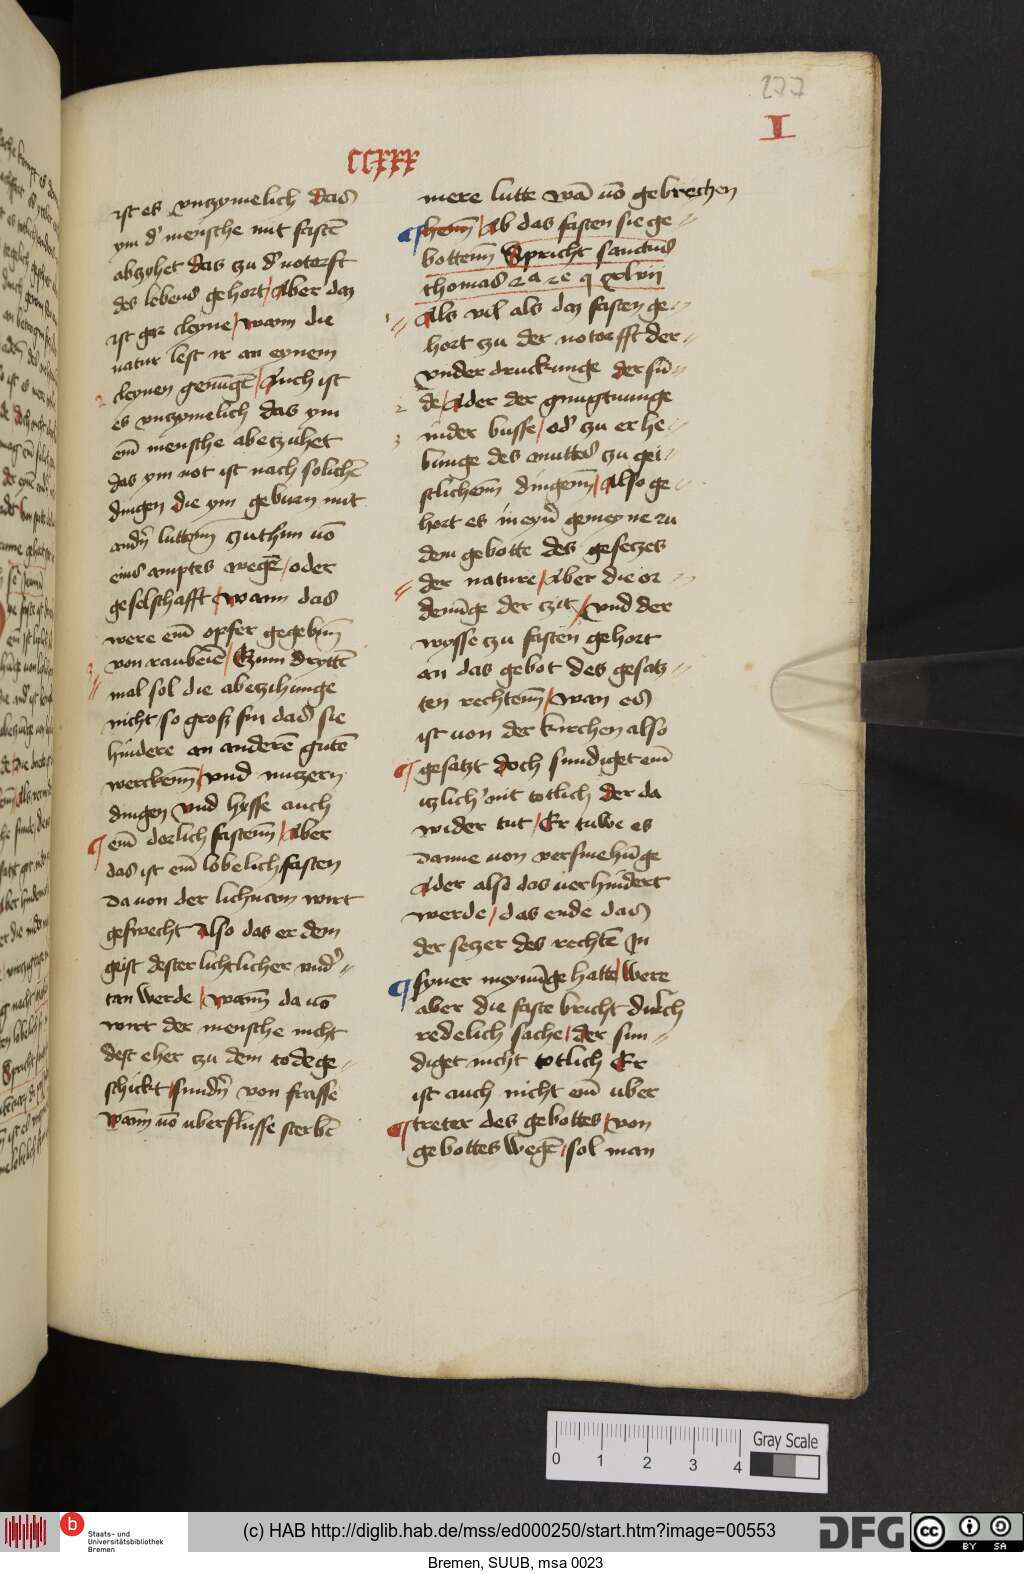 277
I
ccxxx
ist es vnczymelich das
ym d' mensche mit fastē
abzyhet das zu d' notorft
des lebens gehort / Aber daz
ist gar cleyne / wann die
natur lest ir an eynem
cleynen genūgē / Auch ist
es vnczymelich das ym
eın mensche abeczuhet
das ym not ist nach solichē
dingen die ym geburn mit
andn̄ luttenn czuthun vō
eins amptes wegē / oder
geselschafft / wann das
were eın opfer gegebın
von raubeūē / Czum dryttē
mal sol die abeczihunge
nicht so groß sin das sie
hindere an anderē gutē
werckenn / vnd nutzern
dingen vnd hysse auch
eın dorlich fastenn / Aber
das ist eın lobelich fasten
da von der lichnam wirt
geswecht Also das er dem
geist dester lichtlicher vnd'
tan werde / wann da vō
wirt der mensche nicht
dest eher czu dem tode ge
schickt / sundn̄ von frasse
wann vō uberflusse sterbē
mere lutte wā vō gebrechen
henn / Ab das fasten sie ge
bottenn Spricht sanctus
thomas 2a 2e q xlvii
Als vil als daz fasten ge
hort czu der notorfft der
vnder druckunge der sū
de / Ader der gnugtuunge
in der busse / od' zu er he
bunge des muttes zu gei
stlichenn dingenn / Also ge
hort es in eyn̄ gemeyne zu
dem gebotte des gesetzes
der nature / Aber die or
denūge der czit / vnd der
wysse czu fasten gehort
an das gebot des gesatz
ten rechtenn / wan es
ist von der kirchen also
gesatzt doch sundiget eın
iczlich' mit totlich der da
wider tut / Er tuwe es
danne von versmehūge
Ader also das verhindert
werde / das ende das
der setzer des rechtē In
syner meynūge hatt / Were
aber die faste bricht durch
redelich sache / der sun
diget nicht totlich Er
ist auch nicht eın uber
treter des gebottes / von
gebottes wegē / sol man
0 1 2 3 4
Gray Scale
b
Staats- und
Universitätsbibliothek
Bremen
(c) HAB http://diglib.hab.de/mss/ed000250/start.htm?image=00553
DFG
cc
BY SA
Bremen, SUUB, msa 0023